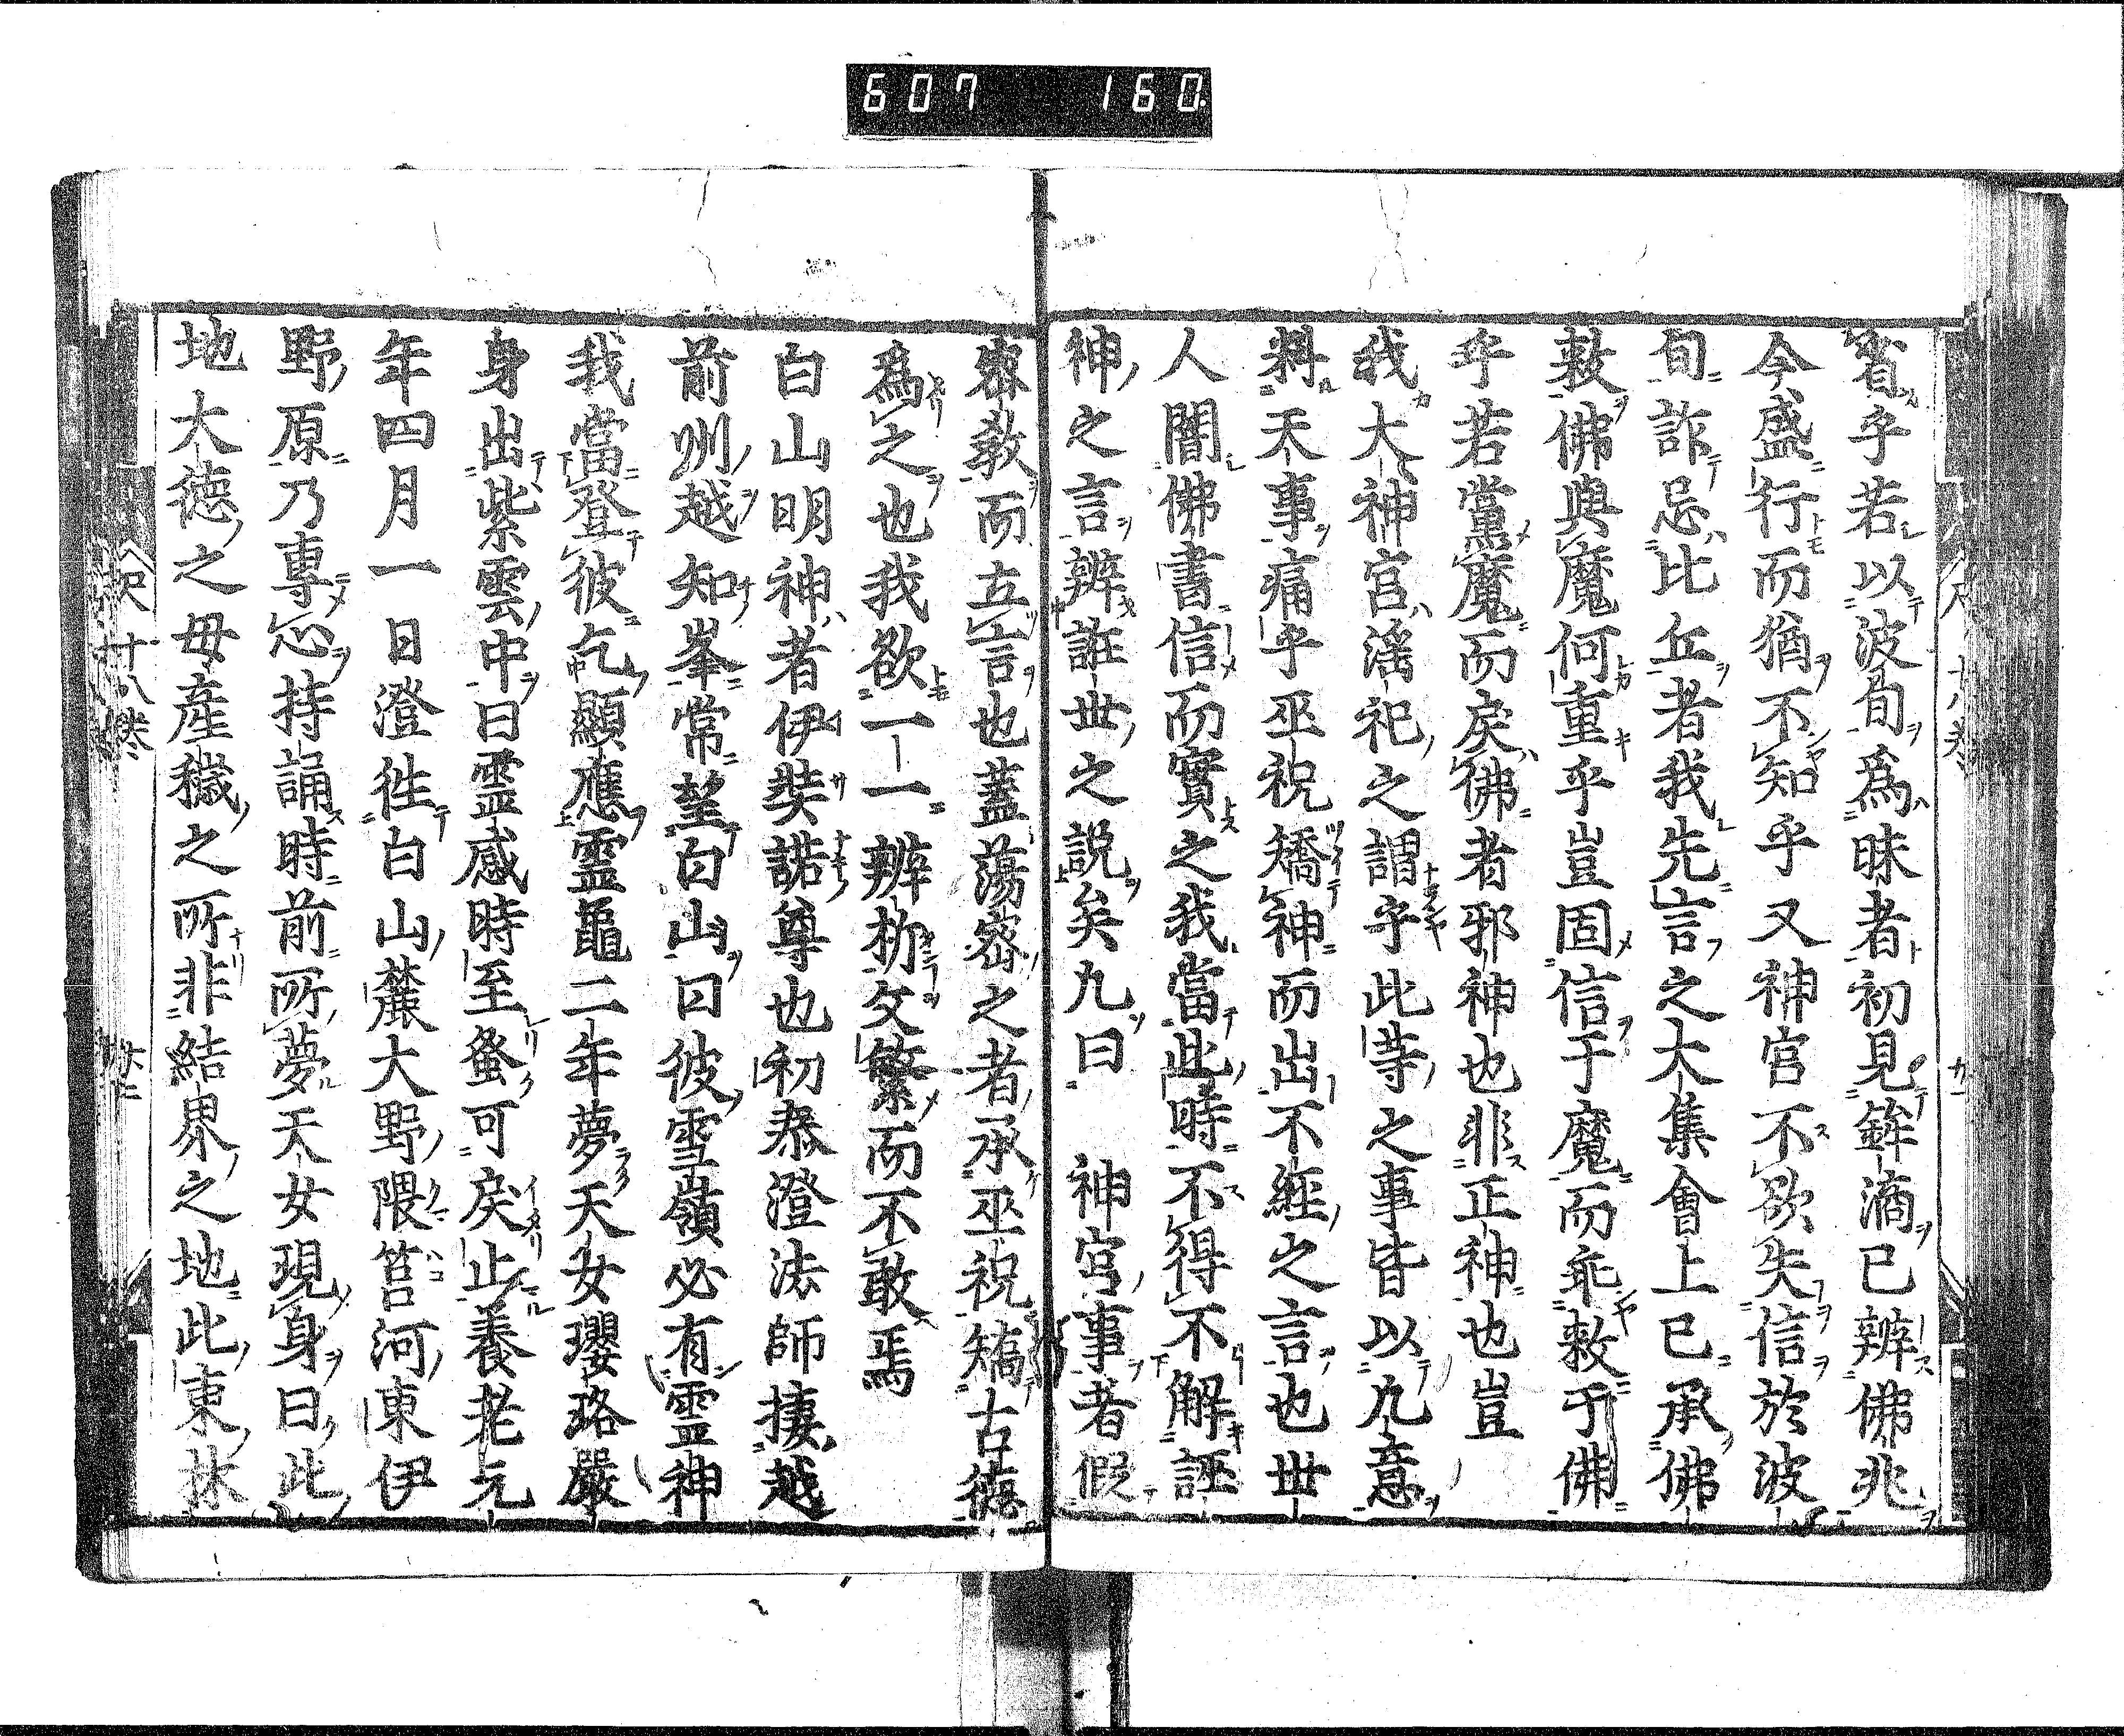 607 160.
省乎若以波旬爲昧者初見鉾滴已辨佛兆
今盛行而猶不知乎又神宮不欲失信於波
旬詐忌比丘者我先言之大集會上已承佛
敕佛與魔何重乎豈固信于魔而乖敕于佛
乎若黨魔而戾佛者邪神也非正神也豈
我大神宮滛祀之謂乎此等之事皆以凡意
料天事痛乎巫祝矯神而出不經之言也世
人闇佛書信而實之我當此時不得不解誣
神之言辨誑世之說矣凡曰 神宮事者假
密敎而立言也蓋蕩密之者承巫祝矯古德
爲之也我欲一一辨析文繁而不敢焉
白山明神者伊奘諾尊也初泰澄法師棲越
前州越知峯常望白山曰彼雪嶺必有靈神
我當登彼乞顯應靈龜二年夢天女瓔珞嚴
身出紫雲中曰靈感時至蚤可戾止養老元
年四月一日澄徃白山麓大野隈筥河東伊
野原乃專心持誦時前所夢天女現身曰此
地大德之母產穢之所非結界之地此東林
十八卷